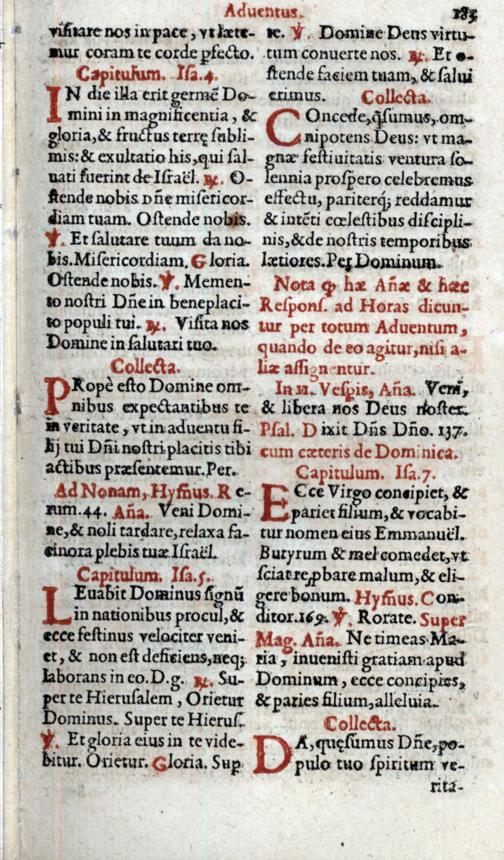 Aduentus. 183
visitare nos in pace, vt læte-
mur coram te corde pfecto.
Capitulum. Isa.4.
IN die illa erit germẽ Do-
mini in magnificentia, &
gloria, & fructus terrę subli-
mis: & exultatio his, qui sal-
uati fuerint de Israël. ℟. O-
stende nobis Dñe misericor-
diam tuam. Ostende nobis.
℣. Et salutare tuum da no-
bis. Misericordiam. Gloria.
Ostende nobis. ℣. Memen-
to nostri Dñe in beneplaci-
to populi tui. ℟. Visita nos
Domine in salutari tuo.
Collecta.
PRopè esto Domine om-
nibus expectantibus te
in veritate, vt in aduentu fi-
lij tui Dñi nostri placitis tibi
actibus præsentemur. Per.
Ad Nonam, Hymnus. Re-
rum. 44. Aña. Veni Domi-
ne, & noli tardare, relaxa fa-
cinora plebis tuæ Israël.
Capitulum. Isa.5.
LEuabit Dominus signũ
in nationibus procul, &
ecce festinus velociter veni-
et, & non est deficiens, neq;
laborans in eo. D.g. ℟. Su-
per te Hierusalem, Orietur
Dominus. Super te Hierus.
℣. Et gloria eius in te vide-
bitur. Orietur. Gloria. Sup
re. ℣. Domine Deus virtu-
tum conuerte nos. ℟. Et o-
stende faciem tuam, & salui
erimus. Collecta.
COncede, qsumus, om-
nipotens Deus: vt ma-
gnæ festiuitatis ventura so-
lennia prospero celebremus
effectu, pariterq; reddamur
& intẽti cœlestibus discipli-
nis, & de nostris temporibus
lætiores. Per Dominum.
Nota ꝙ hæ Añæ & hæc
Respons. ad Horas dicun-
tur per totum Aduentum,
quando de eo agitur, nisi a-
liæ assignentur.
In II. Vespis, Aña. Veni,
& libera nos Deus noster.
Psal. Dixit Dñs Dño. 137.
cum cæteris de Dominica.
Capitulum. Isa.7.
ECce Virgo concipiet, &
pariet filium, & vocabi-
tur nomen eius Emmanuël.
Butyrum & mel comedet, vt
sciat repbare malum, & eli-
gere bonum. Hymnus. Con-
ditor. 169. ℣. Rorate. Super
Mag. Aña. Ne timeas Ma-
ria, inuenisti gratiam apud
Dominum, ecce concipies,
& paries filium, alleluia.
Collecta.
DA, quęsumus Dñe, po-
pulo tuo spiritum ve-
rita-